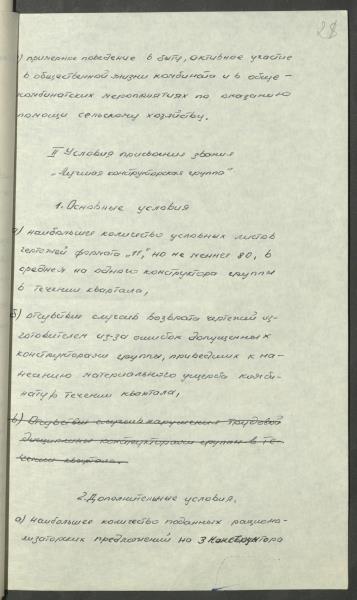 28
) примерное поведение в быту, активное участие
в общественной жизни комбината и в обще-
комбинатских мероприятиях по оказанию
помощи сельскому хозяйству.
II Условия присвоения звания
„Лучшая конструкторская группа"
1. Основные условия
а) наибольшее количество условных листов
чертежей формата „11", но не менее 80, в
среднем на одного конструктора группы
в течении квартала,
б) отсутствие случаев возврата чертежей из-
готовителем из-за ошибок допущенных
конструкторами группы, приведших к на-
несению материального ущерба комби-
нату в течении квартала,
в) Отсутствие случаев нарушения трудовой
дисциплины конструкторами группы в те-
чении квартала.
2. Дополнительные условия.
а) Наибольшее количество поданных рациона-
лизаторских предложений на 3 конструктора